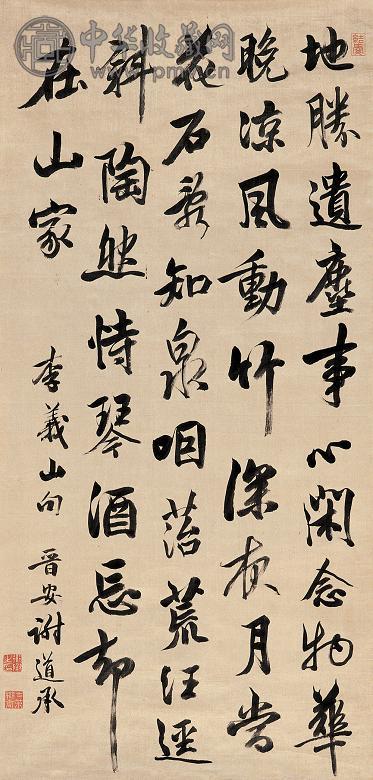 中华收藏网
地勝遺塵事心閑念物華
晚涼風動竹深夜月當
花石亂知泉咽苔荒任逕
斜陶然恃琴酒忘却
在山家
李義山句 晉安謝道承